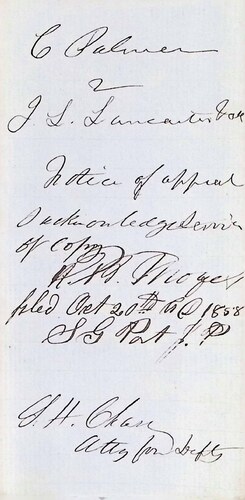 C Palmer
v
J. L. Lancaster
Notice of appeal
I acknowledge service
of Copy
filed Oct 20th AD 1858
S G J. P.
H. Chase
Atty for Defts